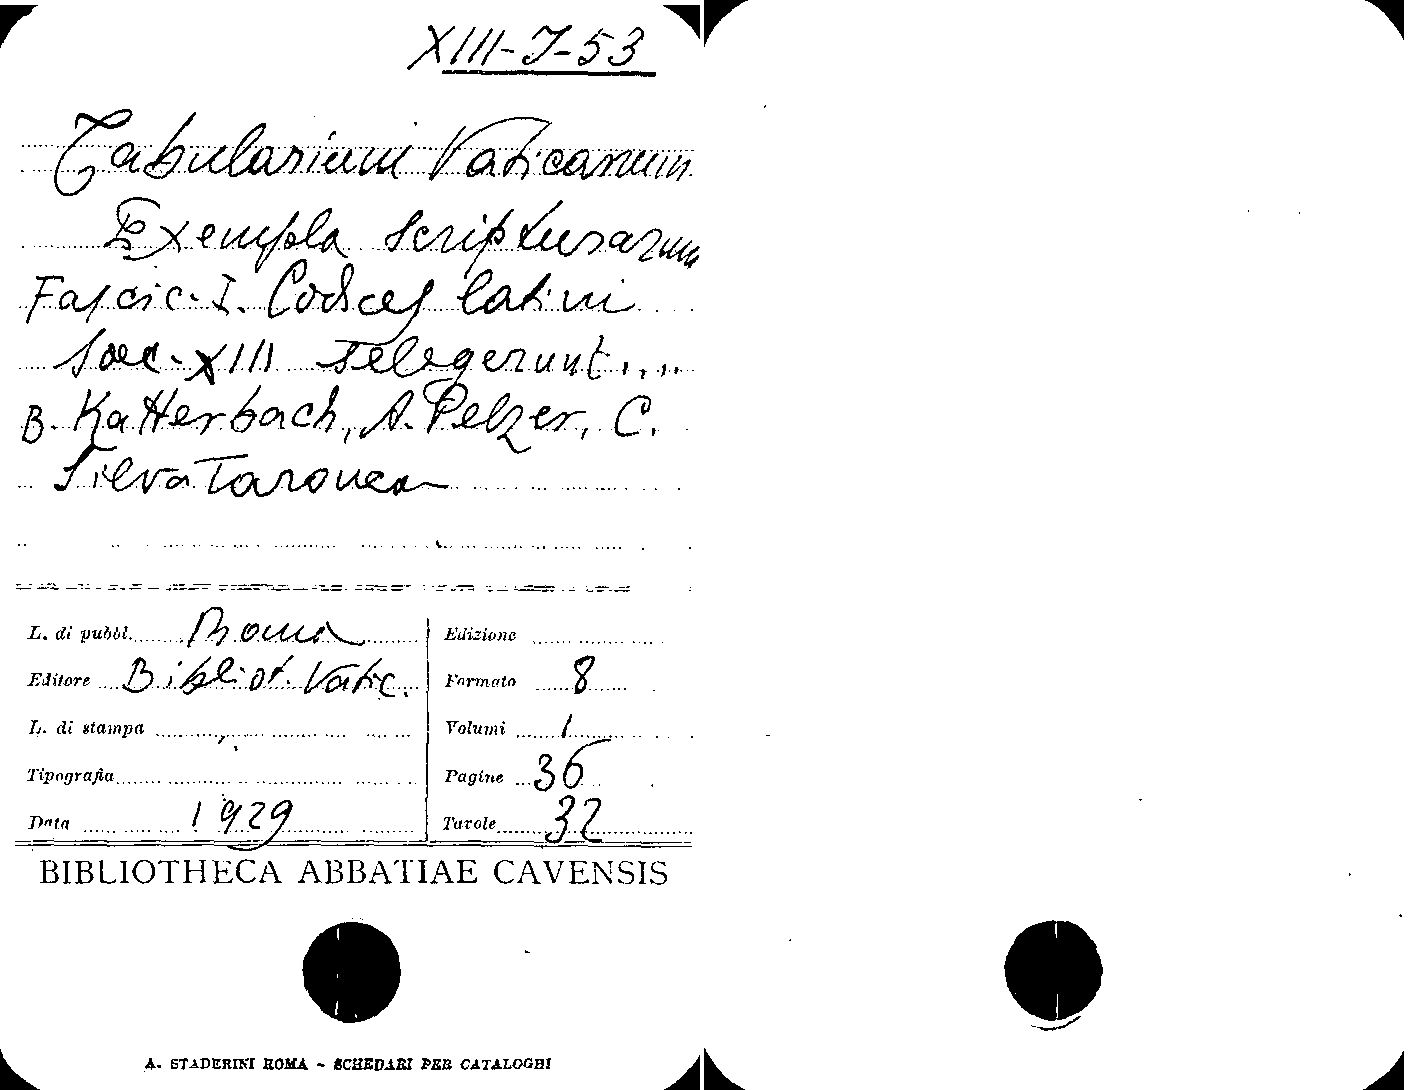 XIII-J-53
Tabularium Vaticanum
Exempla scripturarum
Fascic. I. Codices latini
Saec. XIII selegerunt....
B. Katterbach, A. Pelzer, C.
Silva Tarouca
L. di pubbl. Roma
Editore Bibliot. Vatic.
L. di stampa
Tipografia
Data 1929
Edizione
Formato 8
Volumi 1
Pagine 36
Tavole 32
BIBLIOTHECA ABBATIAE CAVENSIS
A. STADERINI ROMA - SCHEDARI PER CATALOGHI